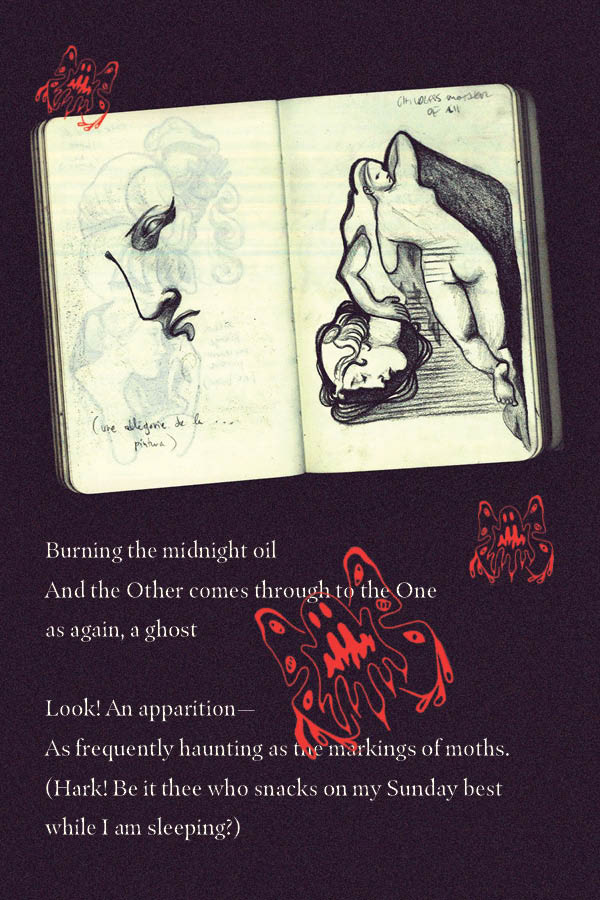 CHILDLESS MOTHER
OF ALL
(une allégorie de la ....
pintura)
Burning the midnight oil
And the Other comes through to the One
as again, a ghost
Look! An apparition—
As frequently haunting as the markings of moths.
(Hark! Be it thee who snacks on my Sunday best
while I am sleeping?)